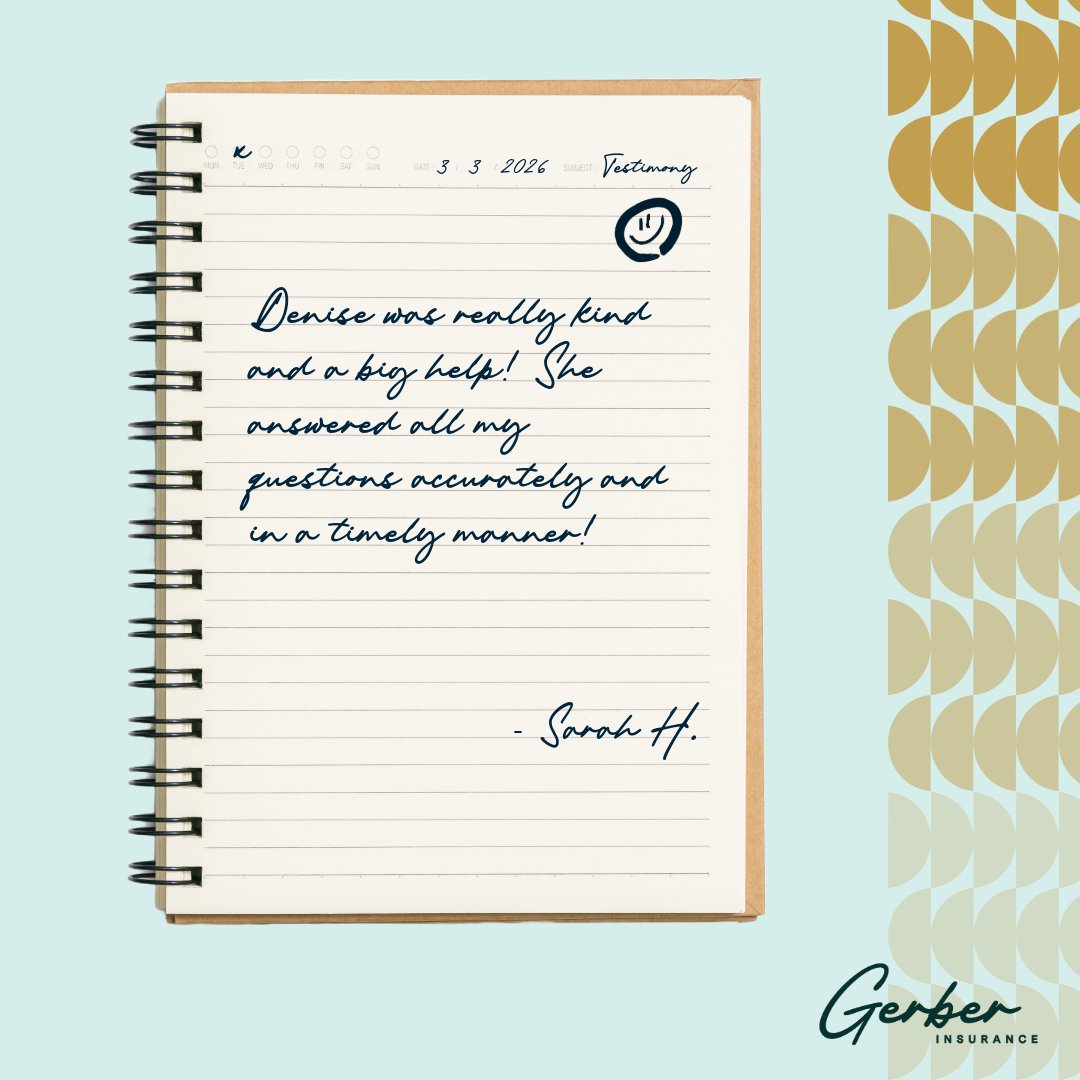 MON TUE WED THU FRI SAT SUN DATE: 3 / 3 / 2026 SUBJECT: Testimony
Denise was really kind
and a big help! She
answered all my
questions accurately and
in a timely manner!
- Sarah H.
Gerber
INSURANCE